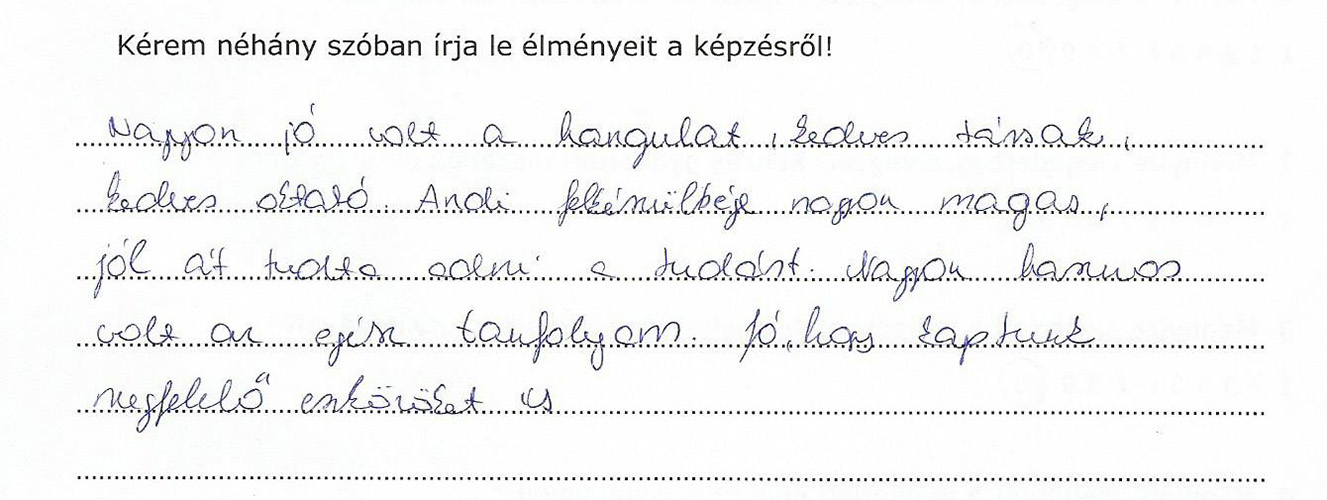 Kérem néhány szóban írja le élményeit a képzésről!
Nagyon jó volt a hangulat, kedves társak,
kedves oktató. Andi felkészültsége nagyon magas,
jól át tudta adni a tudást. Nagyon hasznos
volt az egész tanfolyam. Jó, hogy kaptunk
megfelelő eszközöket is